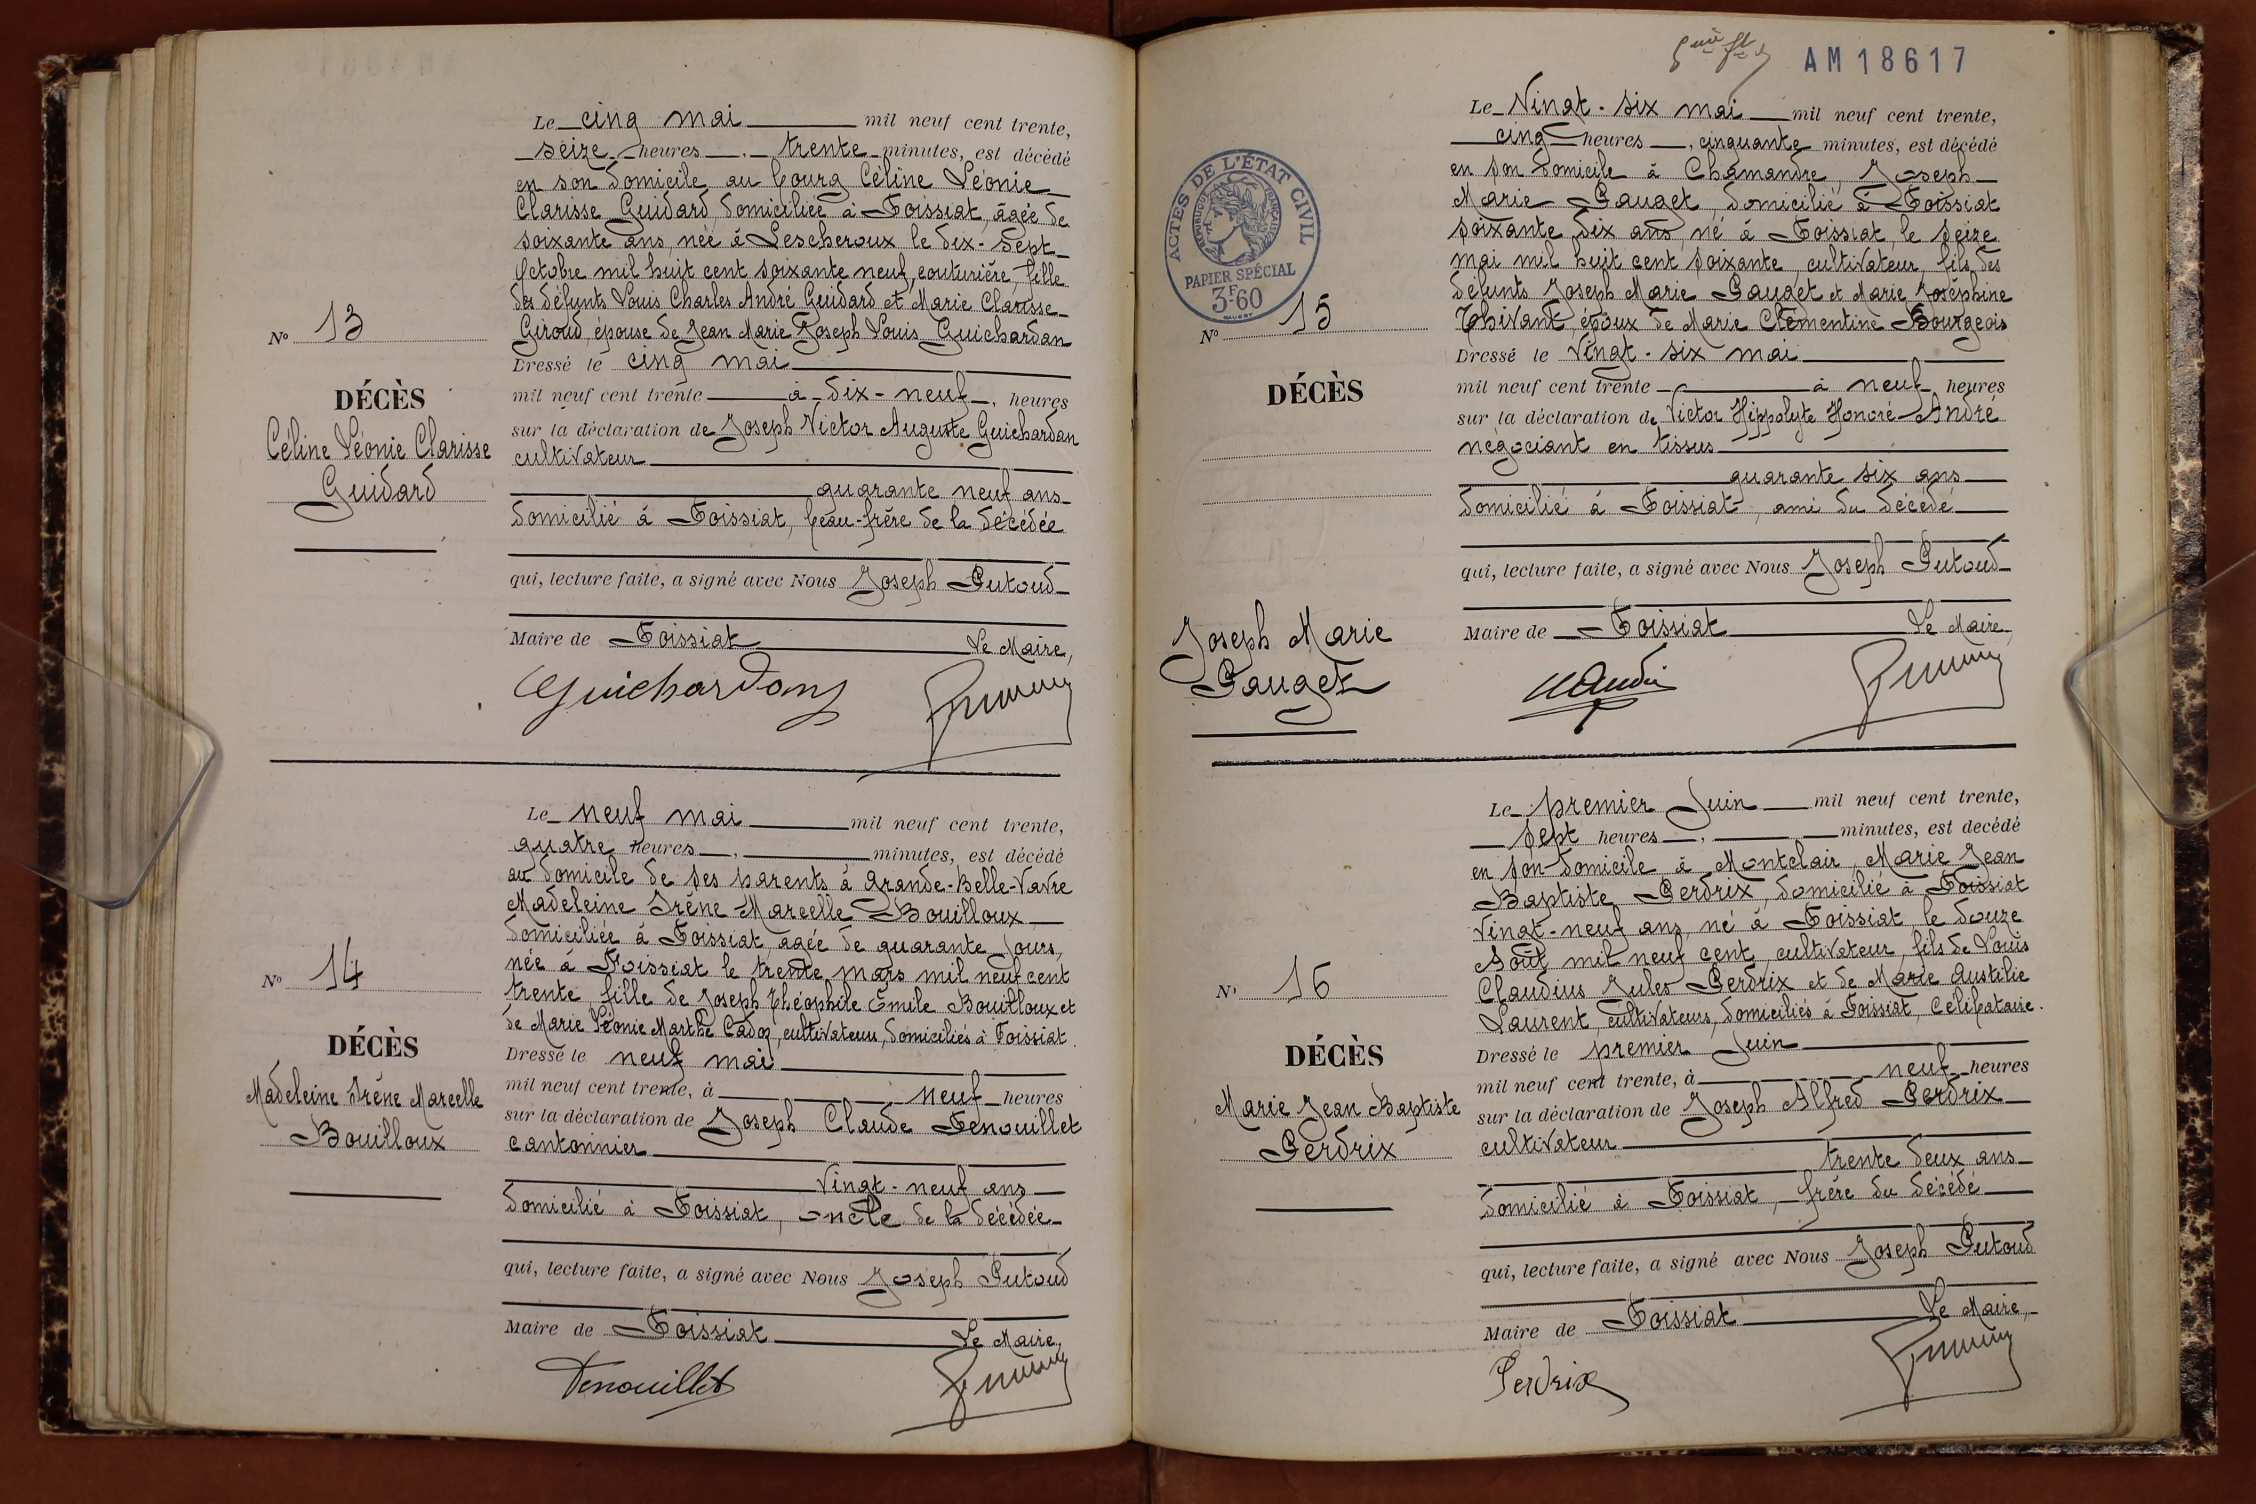 Le cinq mai mil neuf cent trente,
seize heures, trente minutes, est décédé
en son domicile au bourg Céline Léonie
Clarisse Guidard domiciliée à Foissiat, âgée de
soixante ans, née à Lescheroux le dix-sept
Octobre mil huit cent soixante neuf, couturière, fille
des défunts Louis Charles André Guidard et Marie Clarisse
Giroud, épouse de Jean Marie Joseph Louis Guichardan
Dressé le cinq mai
mil neuf cent trente à dix-neuf, heures
sur la déclaration de Joseph Victor Auguste Guichardan
cultivateur
quarante neuf ans
domicilié à Foissiat, beau-frère de la décédée
qui, lecture faite, a signé avec Nous Joseph Putoud
Maire de Foissiat Le Maire,
Guichardan
No 13
DÉCÈS
Céline Léonie Clarisse
Guidard
Le neuf mai mil neuf cent trente,
quatre heures, minutes, est décédé
au domicile de ses parents à Grande-Belle-Vavre
Madeleine Irène Marcelle Bouilloux
domiciliée à Foissiat, âgée de quarante jours,
née à Foissiat le trente mars mil neuf cent
trente, fille de Joseph Théophile Emile Bouilloux et
de Marie Léonie Marthe Cadoz, cultivateurs, domiciliés à Foissiat.
Dressé le neuf mai
mil neuf cent trente, à neuf heures
sur la déclaration de Joseph Claude Fenouillet
cantonnier
vingt-neuf ans
domicilié à Foissiat, oncle de la décédée
qui, lecture faite, a signé avec Nous Joseph Putoud
Maire de Foissiat Le Maire,
Fenouillet
No 14
DÉCÈS
Madeleine Irène Marcelle
Bouilloux
AM18617
ACTES DE L'ÉTAT CIVIL
RÉPUBLIQUE FRANÇAISE
PAPIER SPÉCIAL
3F.60
Le Vingt-six mai mil neuf cent trente,
cinq heures, cinquante minutes, est décédé
en son domicile à Chamandre, Joseph
Marie Pauget, domicilié à Foissiat
soixante dix ans, né à Foissiat, le seize
mai mil huit cent soixante, cultivateur, fils des
défunts Joseph Marie Pauget et Marie Joséphine
Thivant, époux de Marie Clémentine Bourgeois
Dressé le vingt-six mai
mil neuf cent trente à neuf heures
sur la déclaration de Victor Hippolyte Honoré André
négociant en tissus
quarante six ans
domicilié à Foissiat, ami du décédé
qui, lecture faite, a signé avec Nous Joseph Putoud
Maire de Foissiat Le Maire,
No 15
DÉCÈS
Joseph Marie
Pauget
Le premier Juin mil neuf cent trente,
sept heures, minutes, est decédé
en son domicile à Montclair, Marie Jean
Baptiste Perdrix, domicilié à Foissiat
vingt-neuf ans, né à Foissiat, le douze
Août mil neuf cent, cultivateur, fils de Louis
Claudius Jules Perdrix et de Marie Austilie
Laurent, cultivateurs, domiciliés à Foissiat, Célibataire.
Dressé le premier Juin
mil neuf cent trente, à neuf heures
sur la déclaration de Joseph Alfred Perdrix
cultivateur
trente deux ans
domicilié à Foissiat, frère du décédé
qui, lecture faite, a signé avec Nous Joseph Putoud
Maire de Foissiat Le Maire,
Perdrix
No 16
DÉCÈS
Marie Jean Baptiste
Perdrix